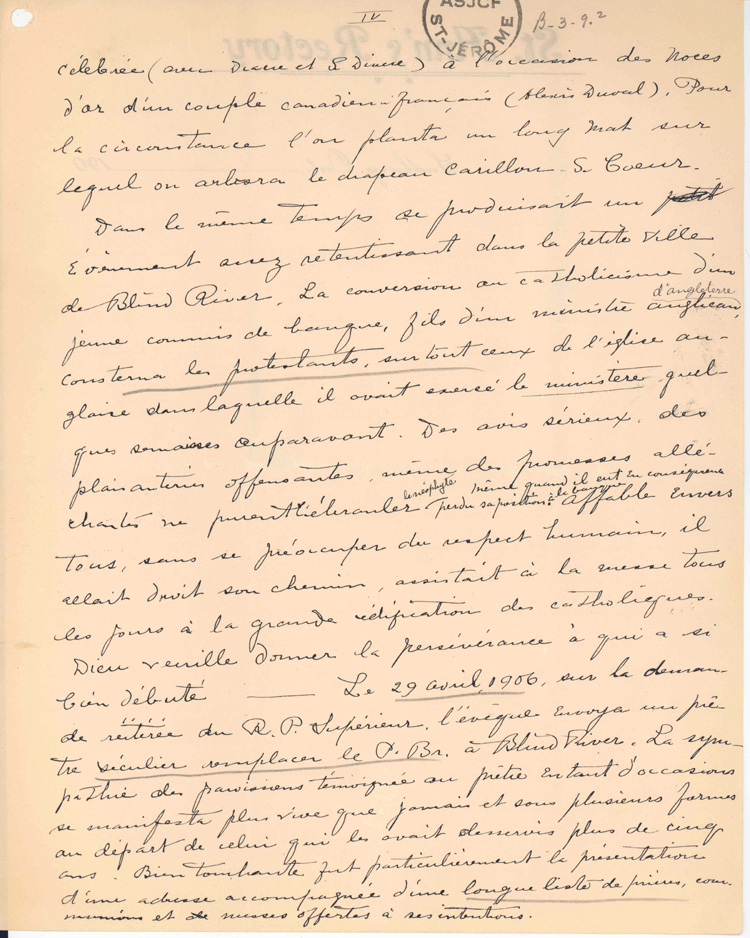 IV
ASJCF
ST-JÉRÔME
B-3-9.2
célébrée (avec Diacre et S. Diacre) à l'occasion des Noces
d'or d'un couple canadien-français (Alexis Duval). Pour
la circonstance l'on planta un long mat sur
lequel on arbora le drapeau Carillon-S. Coeur.
Dans le même temps se produisait un petit
évènement assez retentissant dans la petite ville
de Blind River. La conversion au catholicisme d'un
jeune commis de banque, fils d'un ministre anglican
d'angleterre
consterna les protestants, surtout ceux de l'église an-
glaise dans laquelle il avait exercé le ministère quel-
ques semaines auparavant. Des avis sérieux, des
plaisanteries offensantes, même des promesses allé-
chantes ne purent ébranler le néophyte même quand il eut en conséquence
perdu sa position à la banque. Affable envers
tous, sans se préoccuper du respect humain, il
allait droit son chemin, assistait à la messe tous
les jours à la grande édification des catholiques.
Dieu veuille donner la persévérance à qui a si
bien débuté — Le 29 avril, 1906, sur la deman-
de réitérée du R. P. Supérieur, l'évêque envoya un prê-
tre séculier remplacer le P. Br. à Blind River. La sym-
pathie des paroissiens témoignée au prêtre en tant d'occasions
se manifesta plus vive que jamais et sous plusieurs formes
au départ de celui qui les avait desservis plus de cinq
ans. Bien touchante fut particulièrement la présentation
d'une adresse accompagnée d'une longue liste de prières, com-
munions et de messes offertes à ses intentions.